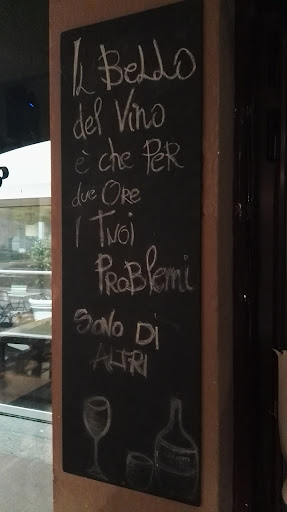 IL BeLLO
del Vino
è che PER
due ORe
I TUOI
PROBlemi
SONO DI
ALTRI